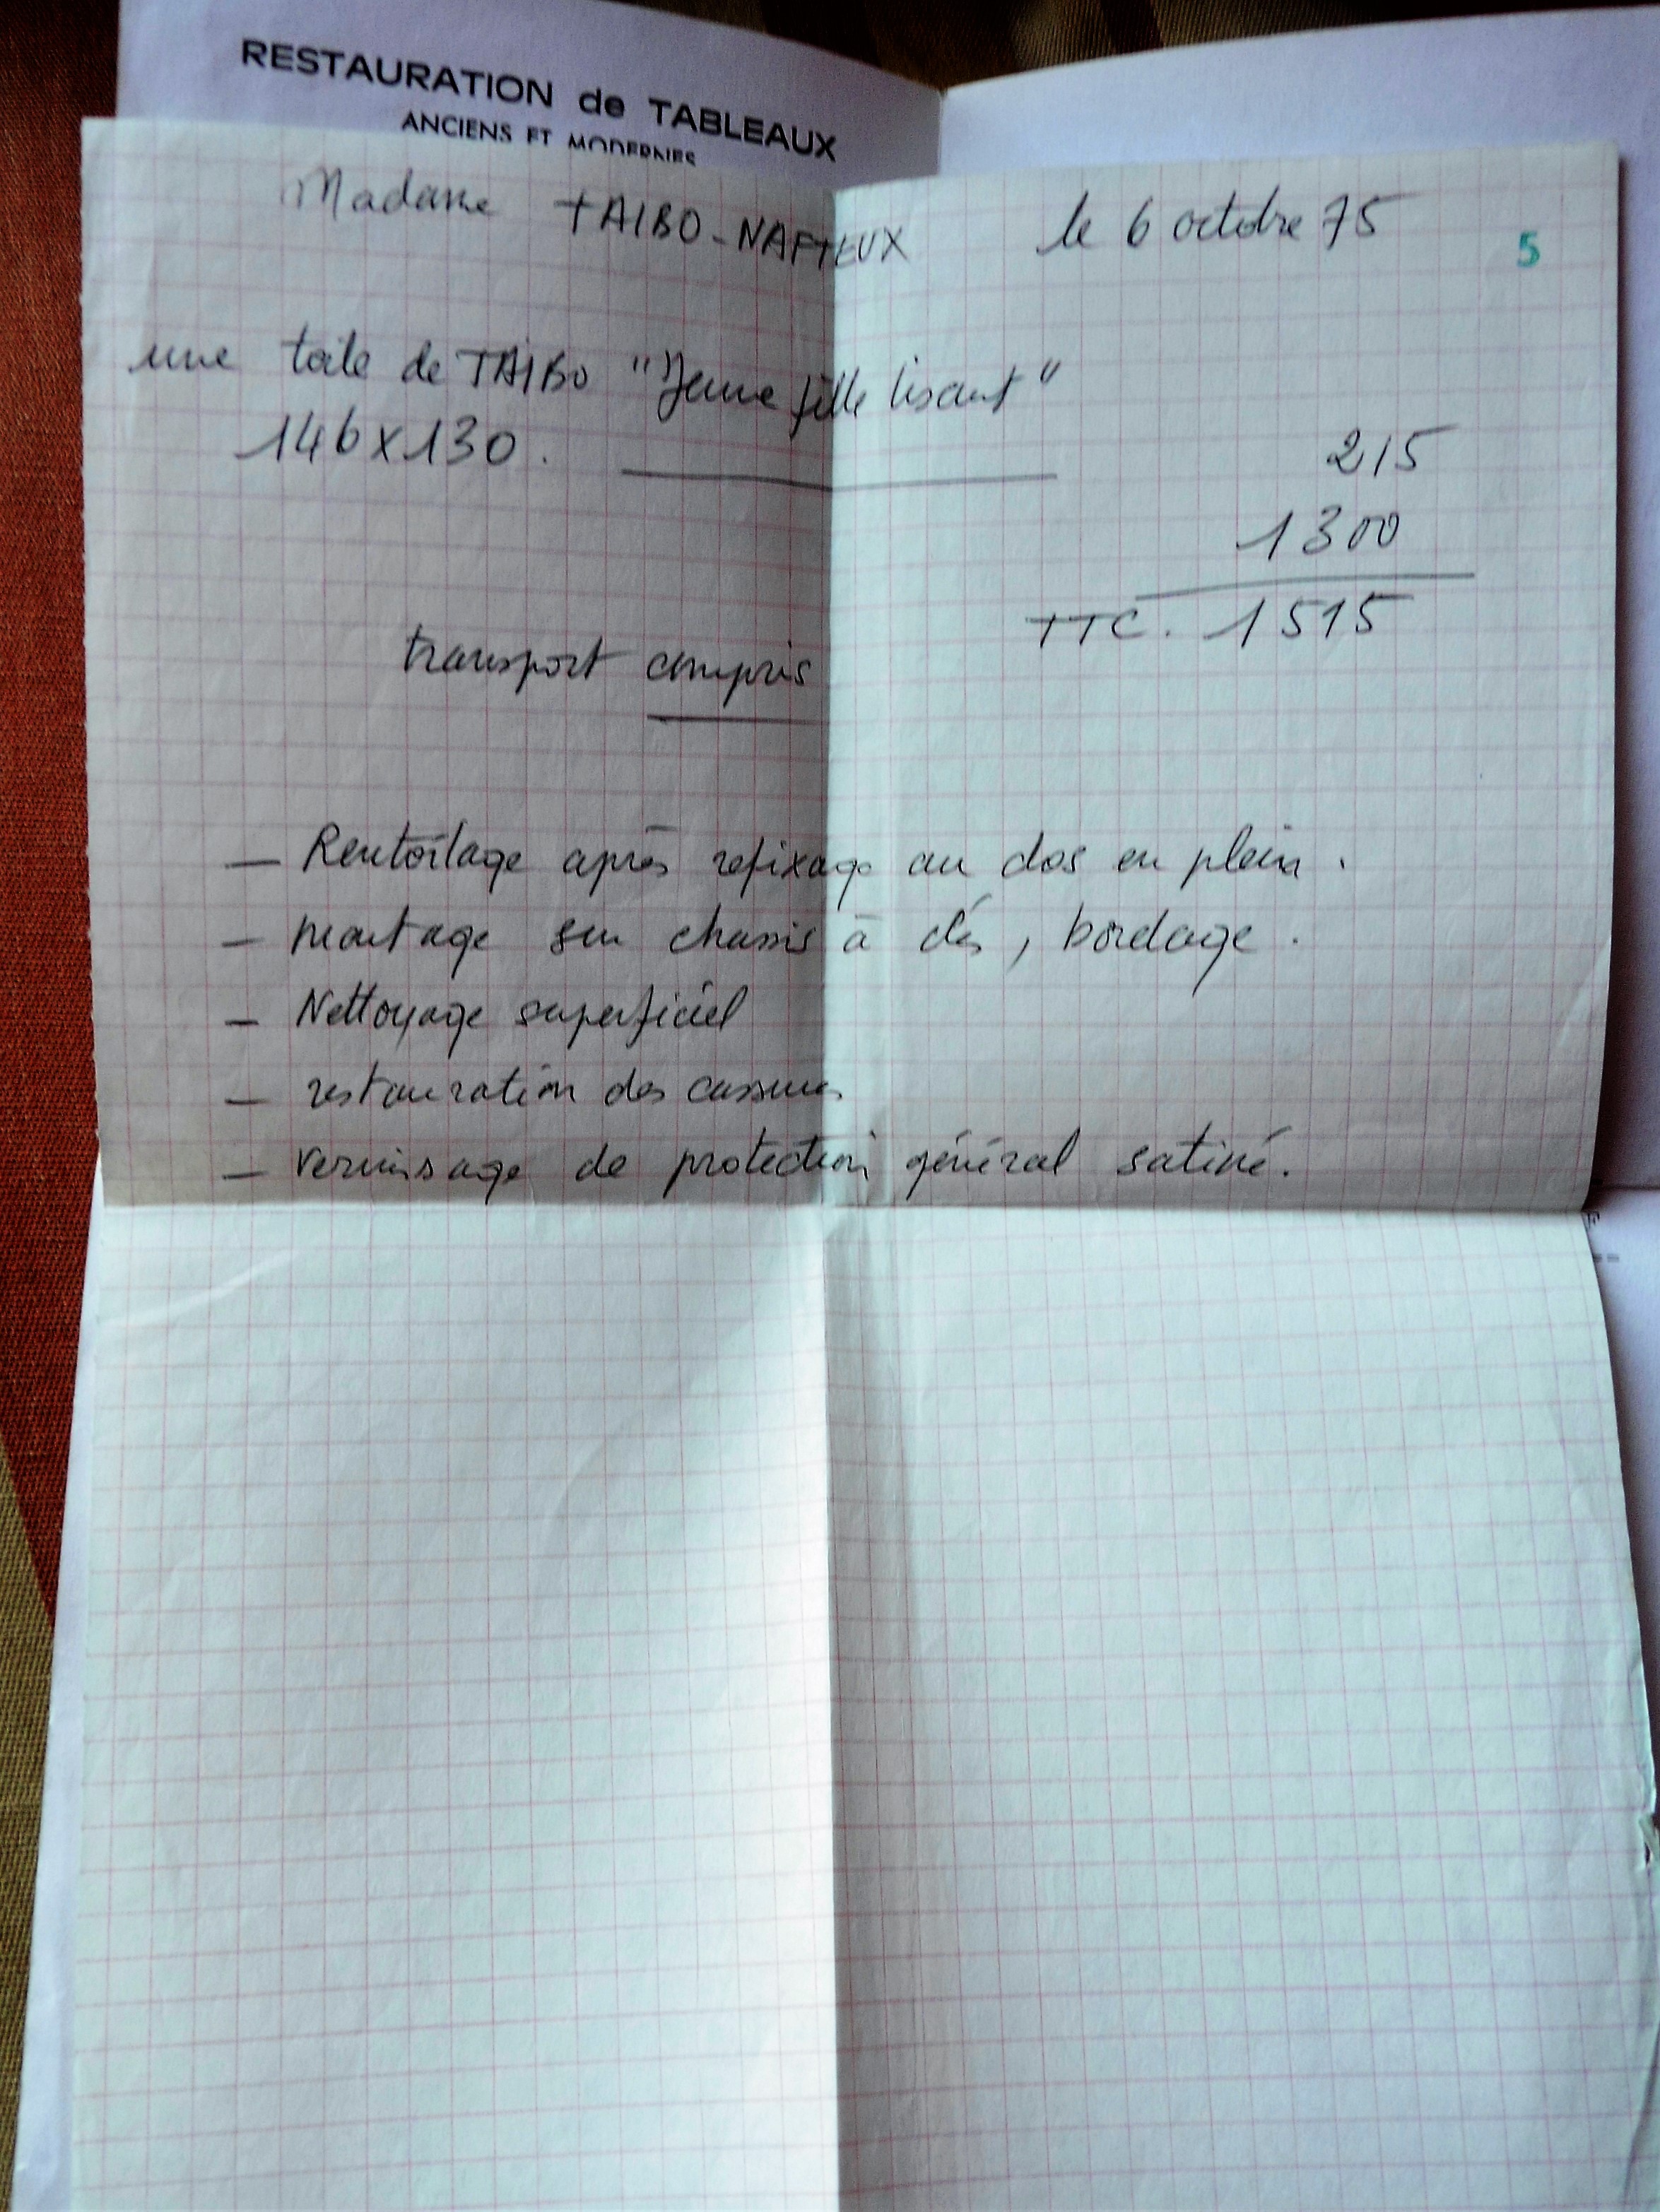 RESTAURATION de TABLEAUX
ANCIENS ET MODERNES
Madame TAIBO-NAFTEUX le 6 octobre 75
5
une toile de TAIBO "Jeune fille lisant"
146x130.
215
1300
TTC. 1515
transport compris
— Rentoilage après refixage au dos en plein.
— montage sur chassis à clés, bordage.
— Nettoyage superficiel
— restauration des cassures
— Vernissage de protection général satiné.